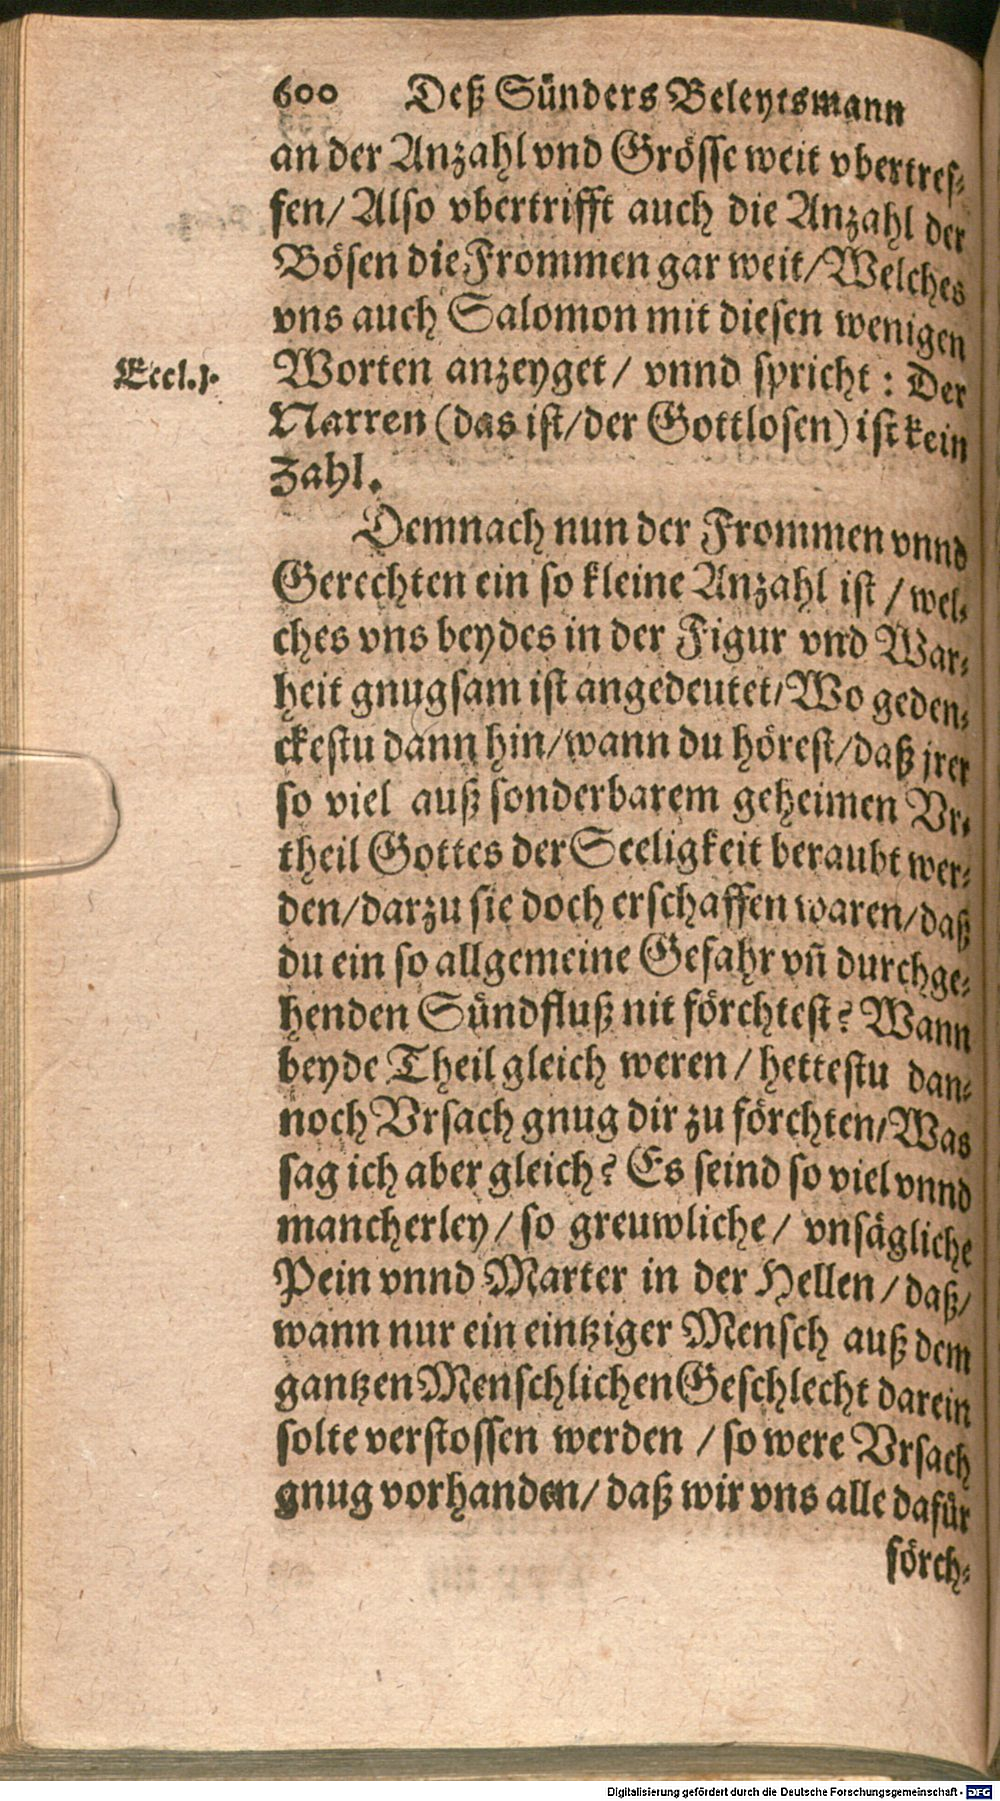 600 Deß Sünders Beleytsmann
an der Anzahl vnd Grösse weit vbertref-
fen/ Also vbertrifft auch die Anzahl der
Bösen die Frommen gar weit/ Welches
vns auch Salomon mit diesen wenigen
Eccl. j.
Worten anzeyget/ vnnd spricht: Der
Narren (das ist/ der Gottlosen) ist kein
Zahl.
Demnach nun der Frommen vnnd
Gerechten ein so kleine Anzahl ist/ wel-
ches vns beydes in der Figur vnd War-
heit gnugsam ist angedeutet/ Wo geden-
ckestu dann hin/ wann du hörest/ daß jrer
so viel auß sonderbarem geheimen Vr-
theil Gottes der Seeligkeit beraubt wer-
den/ darzu sie doch erschaffen waren/ daß
du ein so allgemeine Gefahr vñ durchge-
henden Sündfluß nit förchtest? Wann
beyde Theil gleich weren/ hettestu dan-
noch Vrsach gnug dir zu förchten/ Was
sag ich aber gleich? Es seind so viel vnnd
mancherley/ so greuwliche/ vnsägliche
Pein vnnd Marter in der Hellen/ daß/
wann nur ein eintziger Mensch auß dem
gantzen Menschlichen Geschlecht darein
solte verstossen werden/ so were Vrsach
gnug vorhanden/ daß wir vns alle dafür
förch-
Digitalisierung gefördert durch die Deutsche Forschungsgemeinschaft - DFG